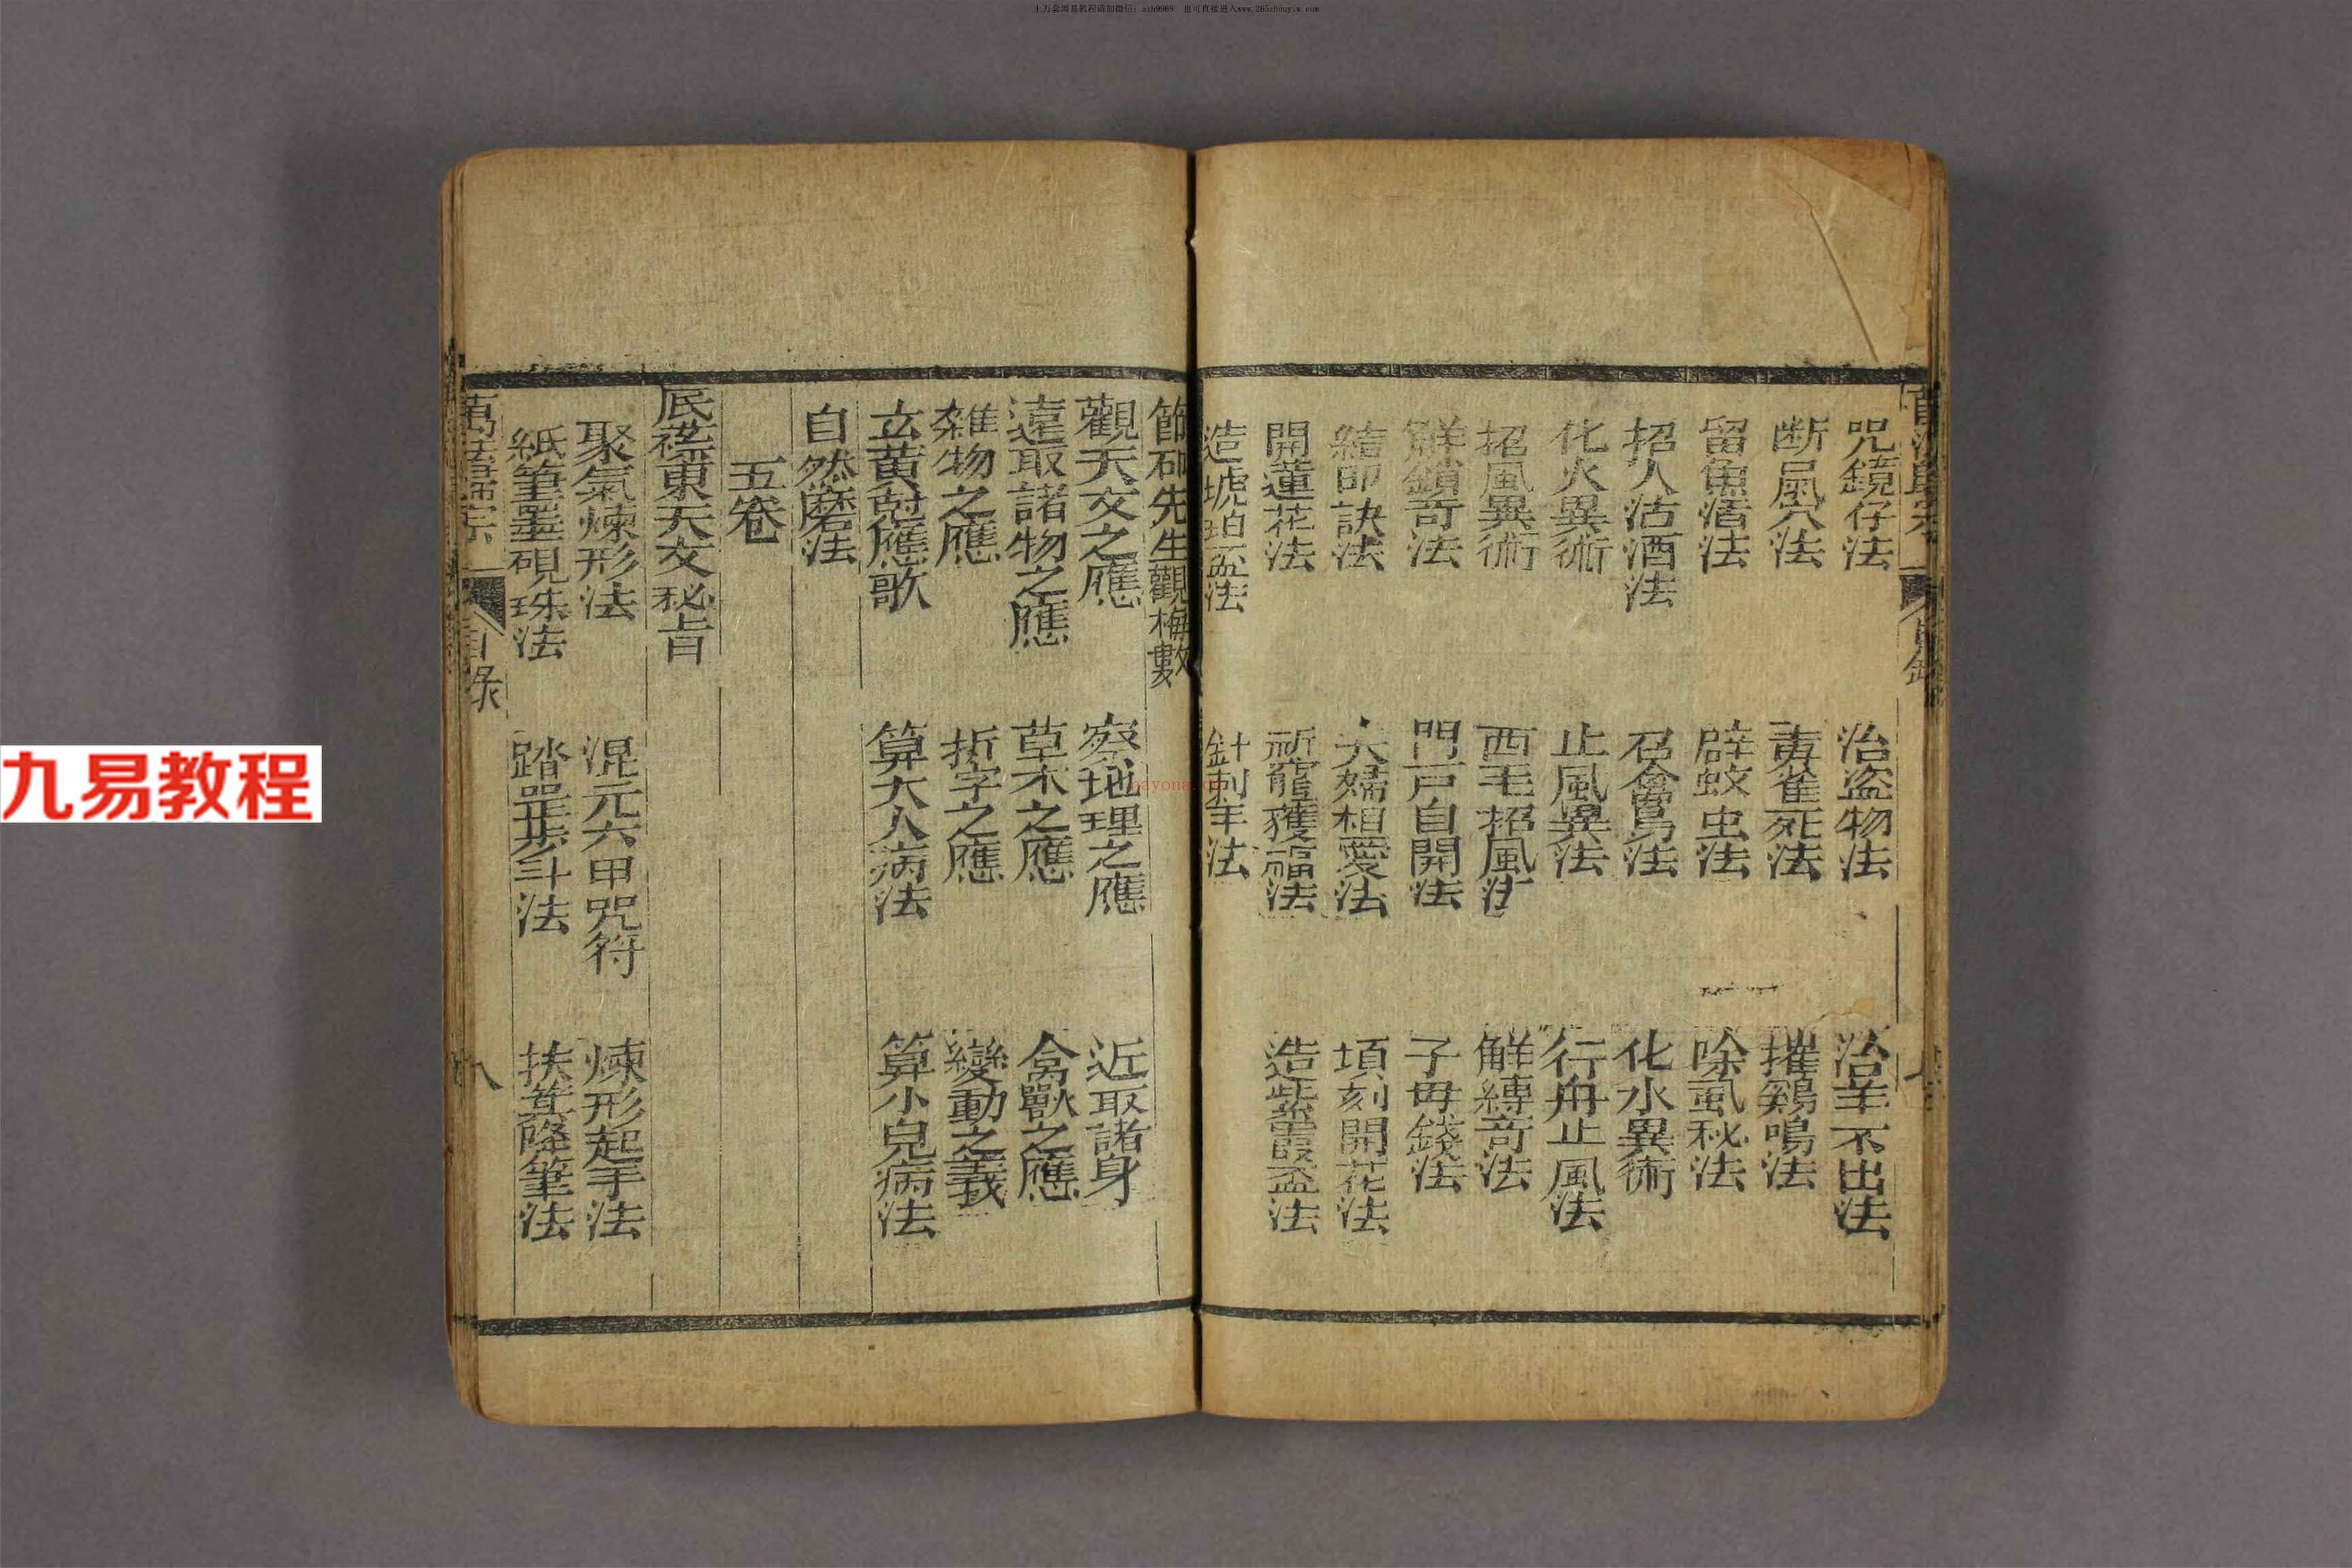 上万套周易教程请加微信：azh9969 也可直接进入www.265zhouyiw.com
目錄
咒鏡仔法 治盜物法 治羊不出法
断鼠穴法 毒雀死法 摧鷄鳴法
留魚酒法 辟蚊虫法 除虱秘法
招人沽酒法 召禽鳥法 化水異術
化火異術 止風異法 行舟止風法
招風異術 西毛招風法 解縳竒法
解鎖竒法 門戸自開法 子毋錢法
結印訣法 夫婦相愛法 項刻開花法
開蓮花法 祈竈獲福法 造紫霞盃法
造琥珀盃法 針刺羊法
先生觀梅數
觀天文之應 察地理之應 近取諸身
遠取諸物之應 草木之應 禽獸之應
雜物之應 拆字之應 變動之義
玄黄尅應歌 算大人病法 算小兒病法
自然磨法
五卷
底襟東天文秘旨
聚氣煉形法 混元六甲咒符 煉形起手法
紙筆墨硯珠法 踏罡步斗法 扶箕降筆法
萬法歸宗 目录 八
九易教程